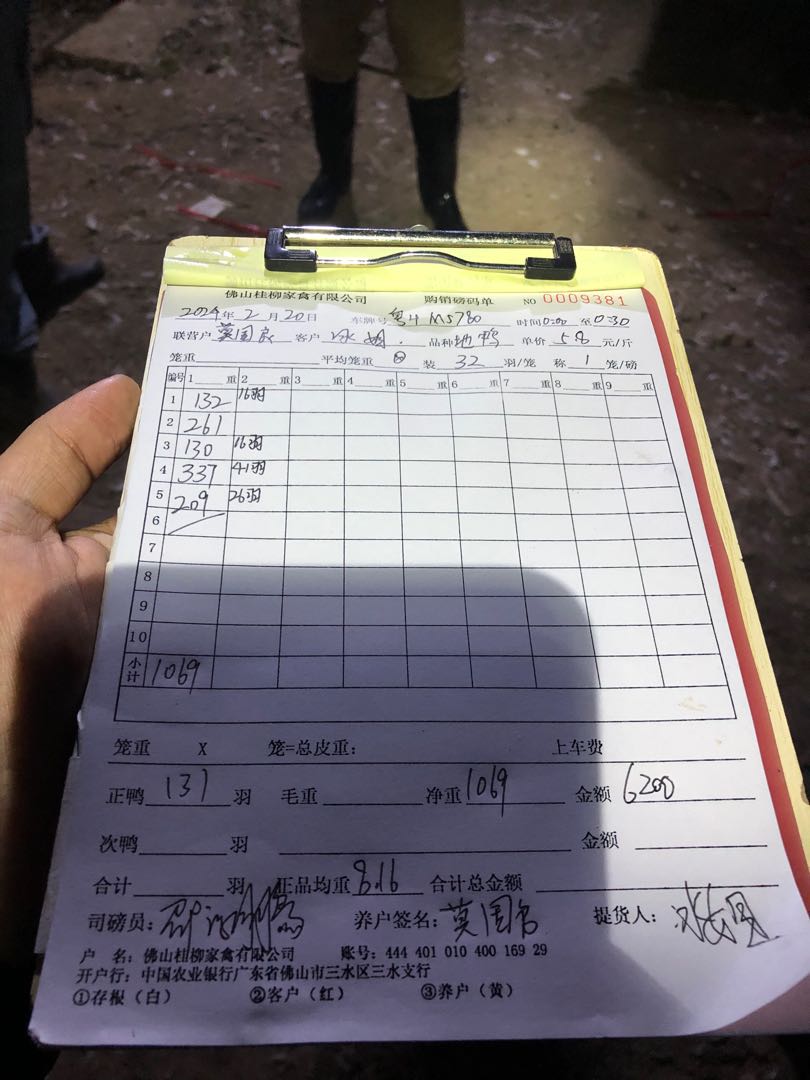 佛山桂柳家禽有限公司 购销磅码单 NO 0009381
2024年2月20日 车牌号 粤H M5780 时间0:00至0:30
联营户 莫国良 客户 品种 地鸭 单价 5.8 元/斤
笼重 平均笼重 0 装 32 羽/笼 称 1 笼/磅
编号 1 重 2 重 3 重 4 重 5 重 6 重 7 重 8 重 9 重
1 132 16羽
2 261
3 130 16羽
4 337 41羽
5 209 26羽
6
7
8
9
10
小计 1069
笼重 X 笼=总皮重: 上车费
正鸭 131 羽 毛重 净重 1069 金额 6200
次鸭 羽 金额
合计 羽 正品均重 8.16 合计总金额
司磅员: 养户签名: 莫国 提货人:
户 名: 佛山桂柳家禽有限公司 账号: 444 401 010 400 169 29
开户行: 中国农业银行广东省佛山市三水区三水支行
①存根(白) ②客户(红) ③养户(黄)